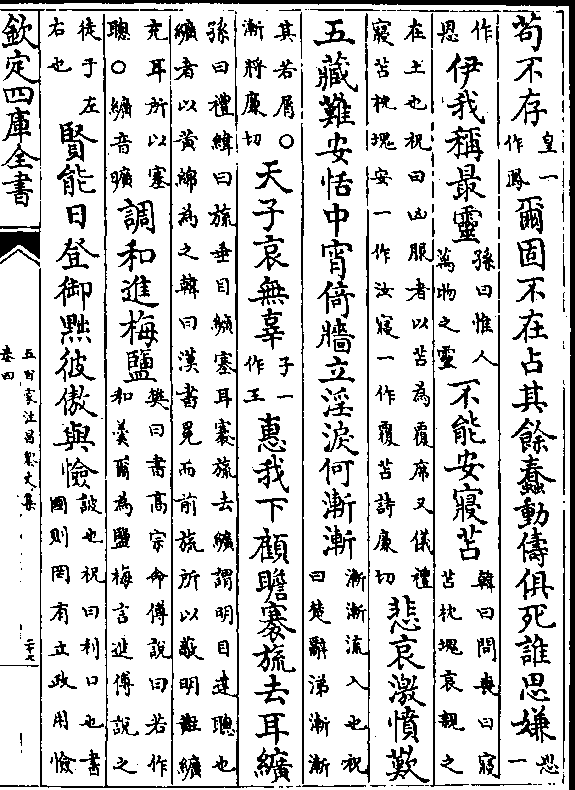 苟不存皇一作鳳爾固不在占其餘蠢動儔俱死誰思嫌思一
作恩伊我稱最靈孫曰惟人萬物之靈不能安寢苫韓曰問喪曰寢苫枕塊哀親之
在土也祝曰凶服者以苫為覆席又儀禮寢苫枕塊安一作汝寢一作覆苫詩廉切悲哀激憤歎
五藏難安恬中宵倚牆立淫淚何漸漸漸漸流入也祝曰楚辭涕漸漸
其若屑○漸將廉切天子哀無辜子一作王惠我下顧瞻褰旒去耳纊
孫曰禮緯曰旒垂目纊塞耳褰旒去纊謂明目達聰也纊者以黃綿為之韓曰漢書冕而前旒所以蔽明黈纊
充耳所以塞聰○纊音曠調和進梅鹽樊曰書高宗命傅說曰若作和羹爾為鹽梅言進傅說之
徒于左右也賢能日登御黜彼傲與憸詖也祝曰利口也書國則罔有立政用憸
欽定四庫全書
五百家注昌黎文集
卷四
二十七